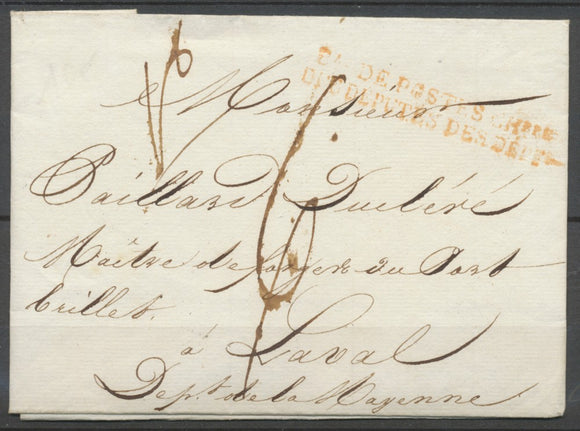 Bau DE POSTES CHBRE
DES DEPUTES DES DEPTS
Monsieur
Paillard Ducléré
Maître de forges du Port
brillet.
à Laval
Dept. de la Mayenne